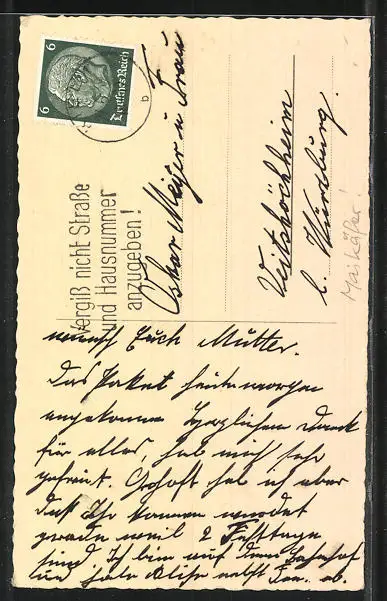 6 6
Deutsches Reich
b
Vergiß nicht Straße
und Hausnummer
anzugeben!
Oskar Meijer u Frau
Veitshöchheim
b. Würzburg.
Maikäfer!
wünscht Euch Mutter.
Das Paket heute morgen
angekommen herzlichen Dank
für alles, hab mich sehr
gefreut. Gehofft hab ich aber
daß Ihr kommen würdet
gerade weil 2 Festtage
sind. Ich bin auf dem Bahnhof
und hole nebst ab.